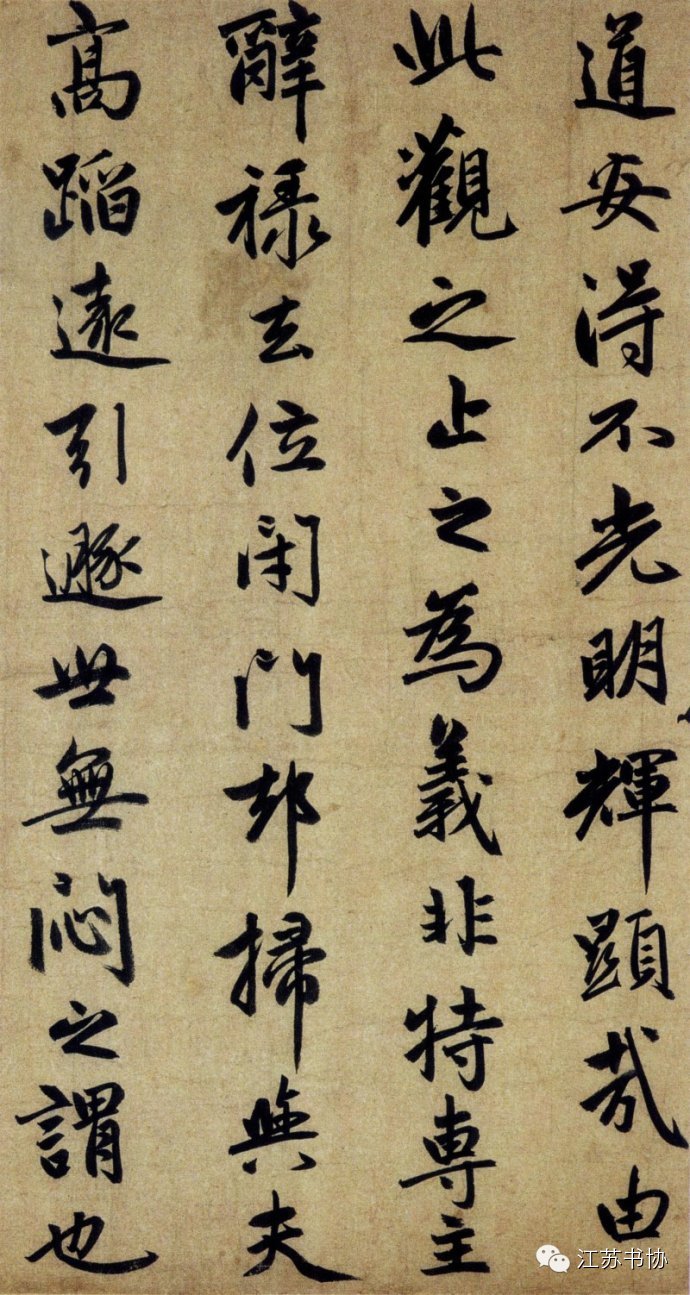 道安得不光明輝顯哉由
此觀之止之為義非特專主
辭祿去位閉門却掃與夫
高蹈遠引遯世無悶之謂也
江苏书协